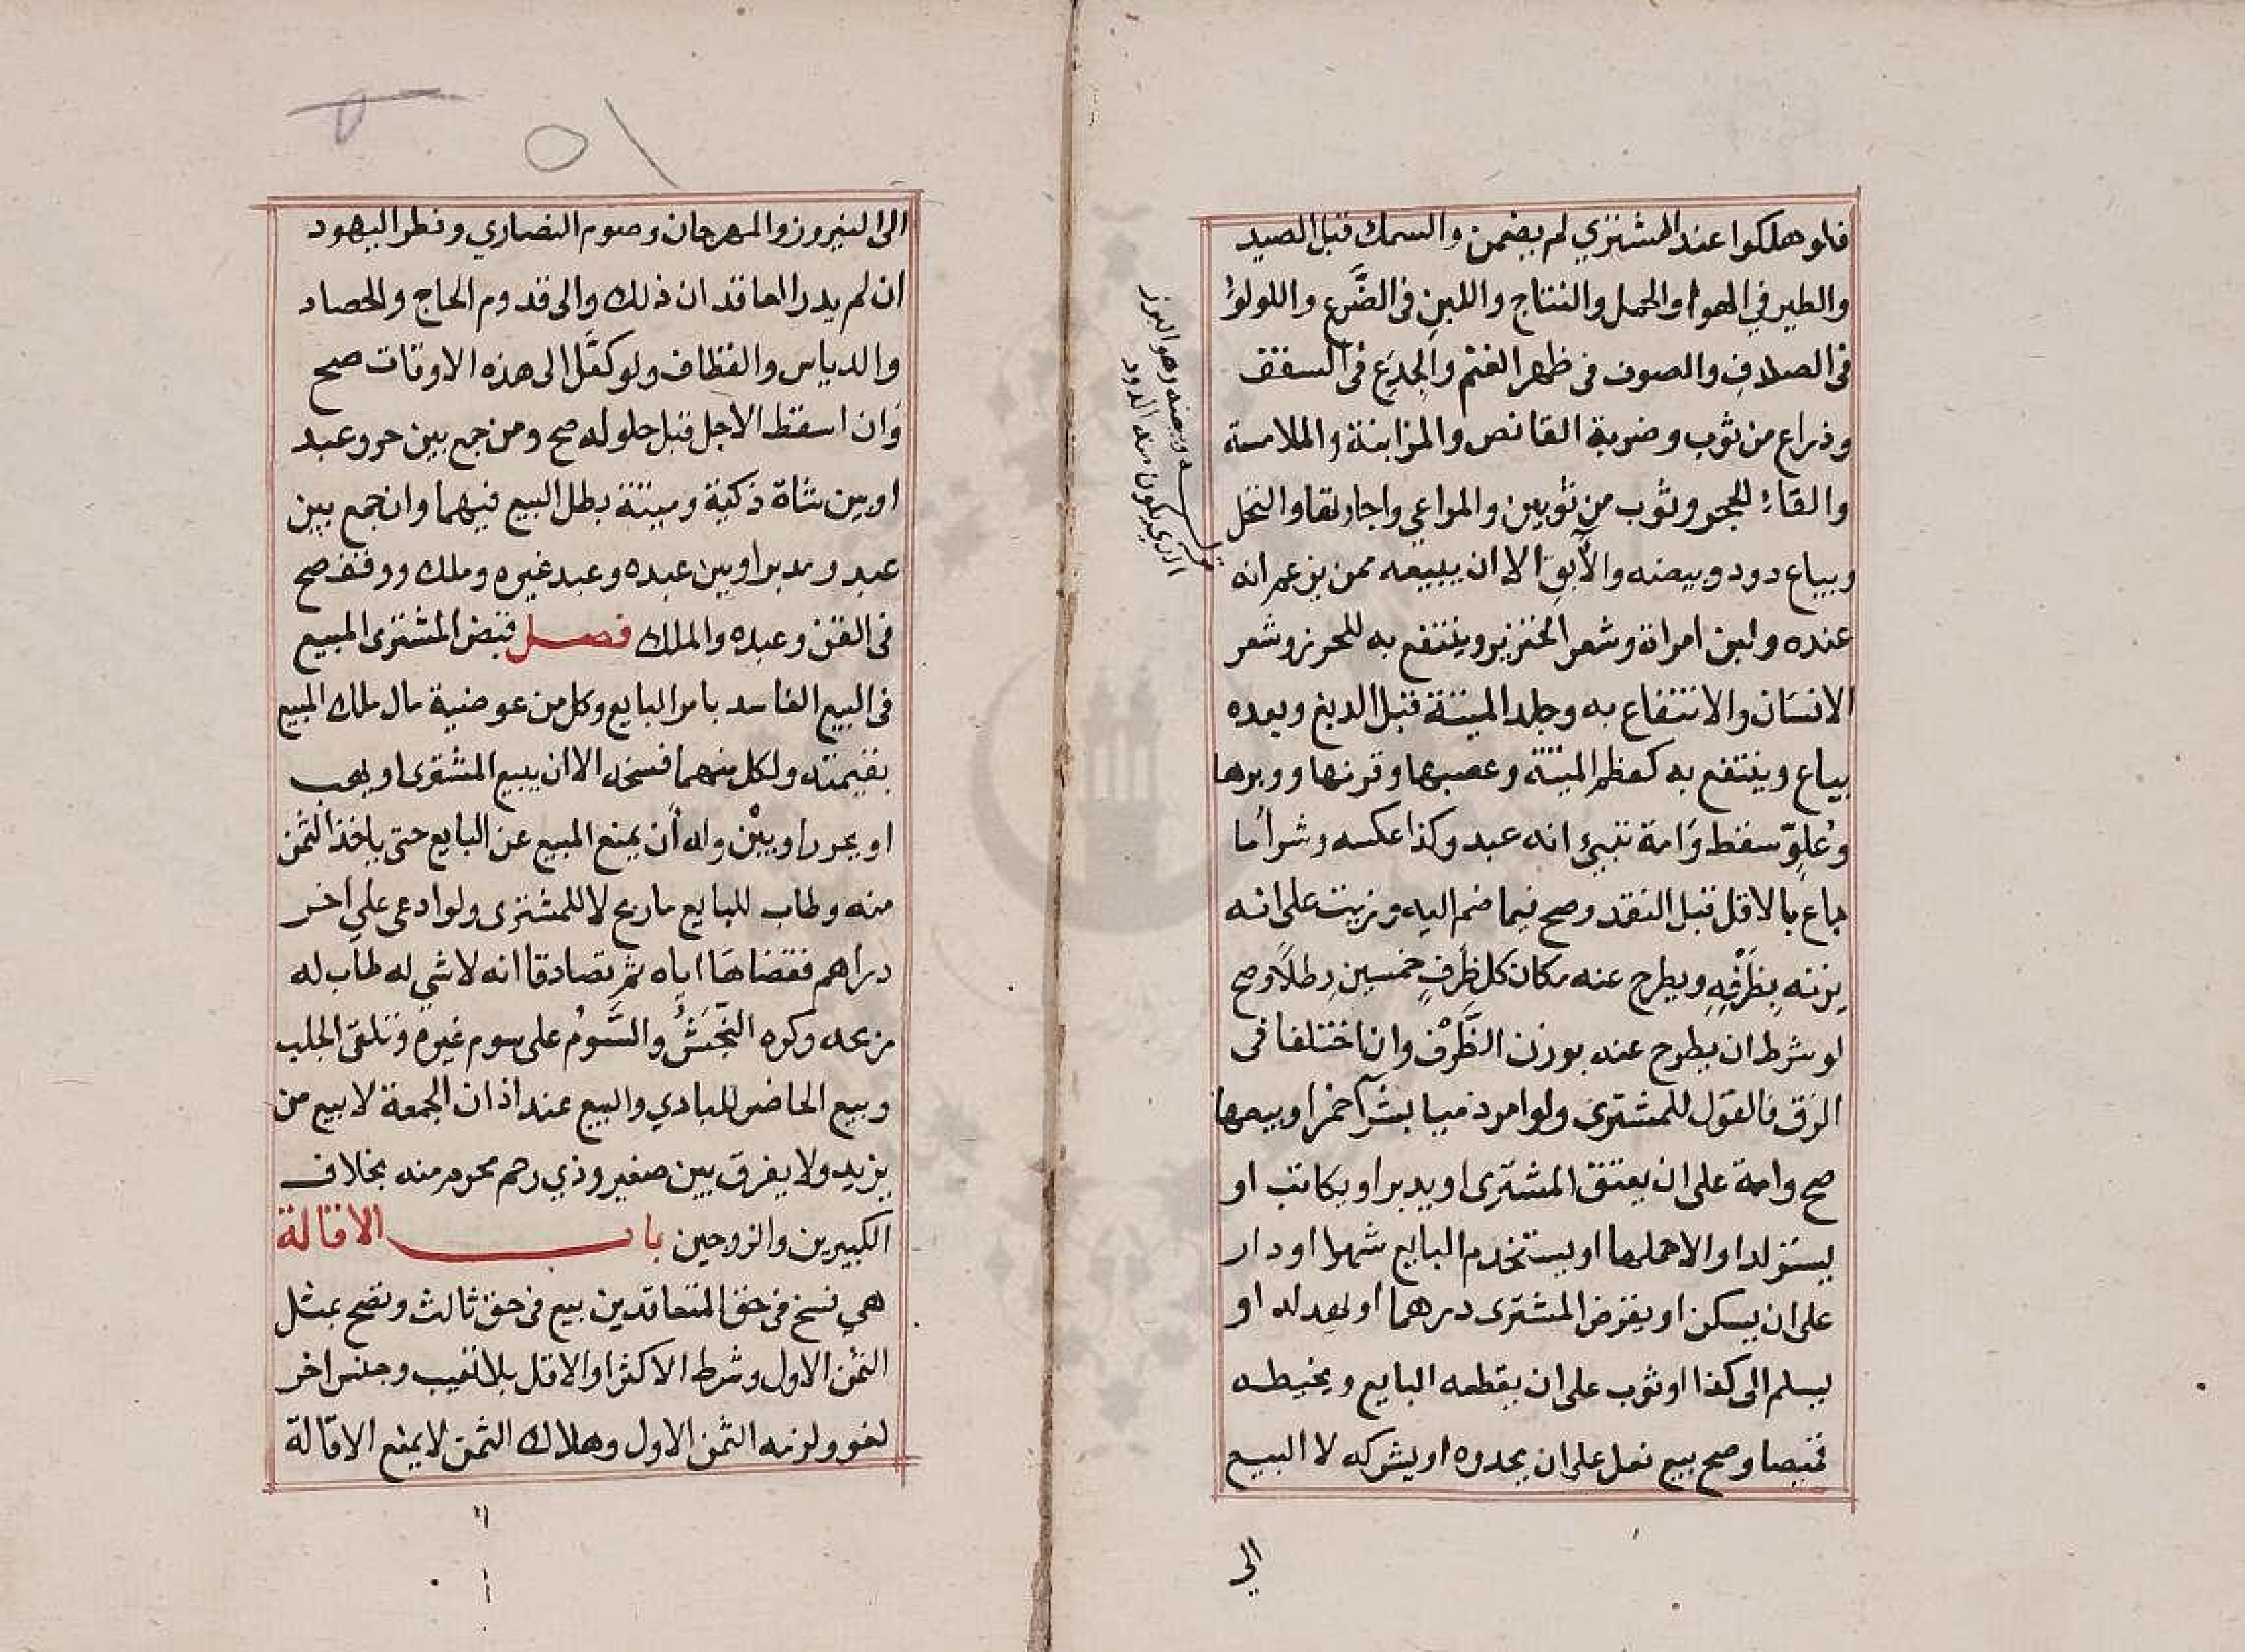 فلو هلكوا عند المشتري لم يضمن والسمك قبل الصيد
والطير في الهوا والحمل والنتاج واللبنِ في الضَّرع واللولؤ
في الصدفِ والصوف في ظهر الغنم والجذع في السقف
وذراع من ثوب وضربة القانص والمزابنة والملامسة
والقاء الحجر وثوب من ثوبين والمراعي واجارتها والنحل
ويباع دود وبيضه والآبق الا ان يبيعه ممن يزعم انه
عنده ولبن امراة وشعر الخنزير وينتفع به للخرز وشعر
الانسان والانتفاع به وجلد الميتة قبل الدبغ وبعده
يباع وينتفع به كعظم الميتة وعصبها وقرنها ووبرها
وعُلِوّ سقط وَامة تبين انه عبد وكذا عكسه وشرا ما
باع بالاقل قبل النقد وصح فيما ضم اليه وزيت على انه
يزنه بِظَرْفِهِ ويطرح عنه مكان كل ظرفٍ خمسين رِطلاً وصح
لو شرط ان يطرح عنه بوزن الظَّرْف وان اختلفا في
الزق فالقول للمشتري ولو امر ذميا بشرآ خمرا وبيعها
صح وامة على ان يعتق المشترى او يدبر او يكاتب او
يستولد او الا حملها او يستخدم البايع شهرا او دار
على ان يسكن او يقرض المشترى درهما او يهد له او
يسلم الى كذا او ثوب على ان يقطعه البايع ويخيطه
قميصا وصح بيع نعل على ان يحدوه او يشركه لا البيع
الي
وبيضه وهو البزر
الذي يكون منه الدود
الى النيروز والمهرجان وصوم النصاري وفطر اليهود
ان لم يدر العاقدان ذلك والى قدوم الحاج والحصاد
والدياس والقطاف ولو كفَّل الى هذه الاوقات صح
وَان اسقط الاجل قبل حلوله صح ومن جمع بين حر وعبد
او بين شاة ذكية وميتة بطل البيع فيهما وان جمع بين
عبد ومدبر او بين عبده وعبد غيره وملك ووقف صح
في القن وعبده والملك فصل قبض المشترى المبيع
في البيع الفاسد بامر البايع وكل من عوضية مال ملك المبيع
بقيمته ولكل منهما فسخه الا ان يبيع المشترى او يهب
او يحرر او يبْن وله أن يمنع المبيع عن البايع حتى ياخذ الثمن
منه وطاب للبايع ما ربح لا للمشترى ولو ادعى على اخر
دراهم فقضاهَا اياه ثم تصادقا انه لا شي له طاب له
ربحه وكره النجَشُ والسَّومُ على سوم غيره وتلقى الجلب
وبيع الحاضر للبادي والبيع عند اذان الجمعة لا بيع من
يزيد ولا يفرق بين صغير وذي رحم محرم منه بخلاف
الكبيرين والزوجين باب الاقالة
هي فسخ في حق المتعاقدين بيع في حق ثالث وتصح بمثل
الثمن الاول وشرط الاكثر او الاقل بلا تعيب وجنس اخر
لغو ولزمه الثمن الاول وهلاك الثمن لا يمنع الاقالة